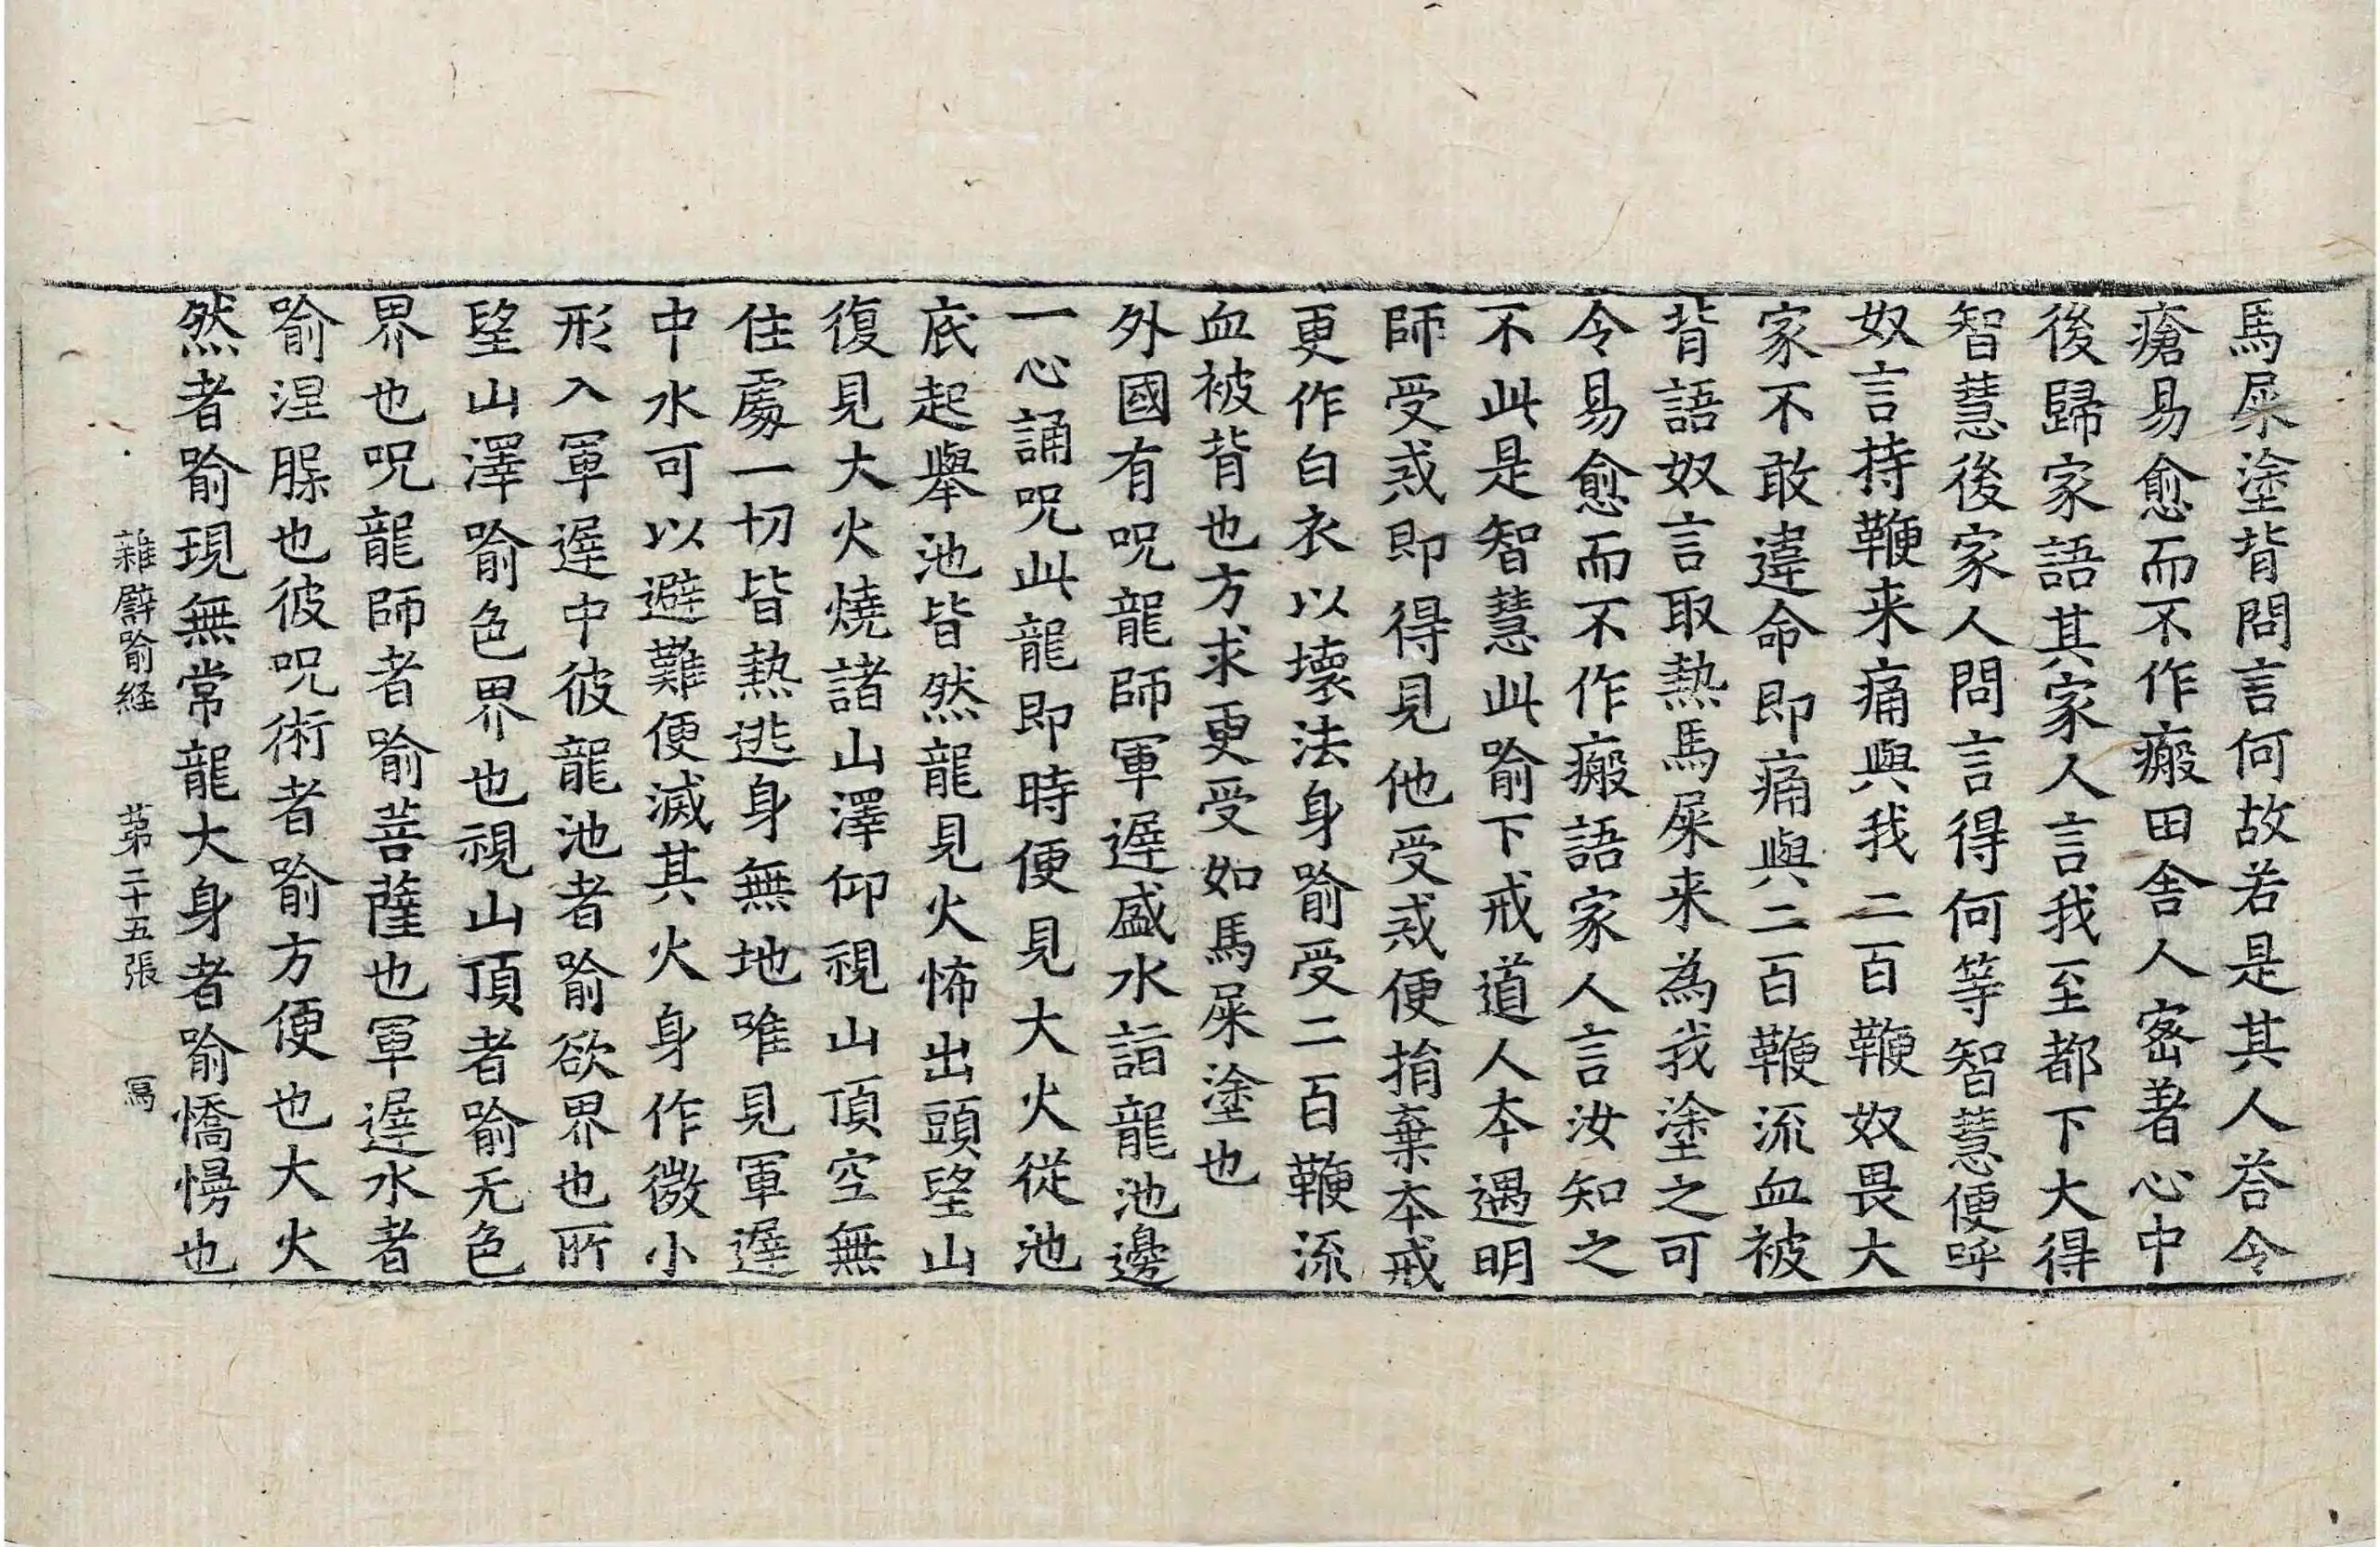 馬屎塗背問言何故若是其人荅令
瘡易愈而不作瘢田舍人密著心中
後歸家語其家人言我至都下大得
智慧後家人問言得何等智慧便呼
奴言持鞭来痛與我二百鞭奴畏大
家不敢違命即痛與二百鞭流血被
背語奴言取熱馬屎来為我塗之可
令易愈而不作瘢語家人言汝知之
不此是智慧此喻下戒道人本遇明
師受戒即得見他受戒便捐棄本戒
更作白衣以壞法身喻受二百鞭流
血被背也方求更受如馬屎塗也
外國有呪龍師軍遲盛水詣龍池邊
一心誦呪此龍即時便見大火從池
底起舉池皆然龍見火怖出頭望山
復見大火燒諸山澤仰視山頂空無
住處一切皆熱逃身無地唯見軍遲
中水可以避難便滅其火身作微小
形入軍遲中彼龍池者喻欲界也所
望山澤喻色界也視山頂者喻无色
界也呪龍師者喻菩薩也軍遲水者
喻涅脲也彼呪術者喻方便也大火
然者喻現無常龍大身者喻憍慢也
雜譬喻経 苐二十五張 寫